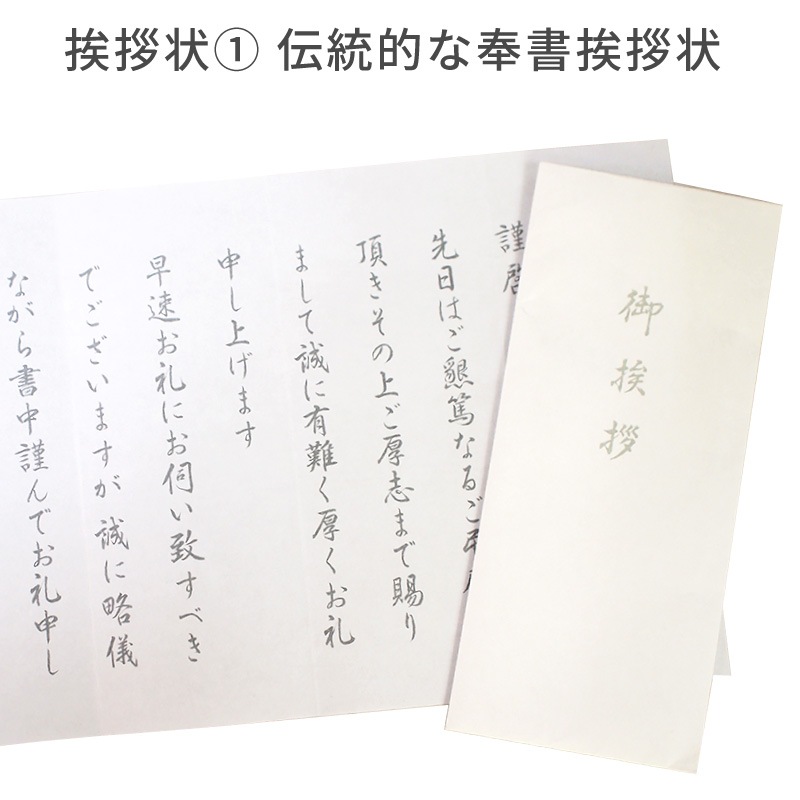 挨拶状① 伝統的な奉書挨拶状
謹啓
先日はご懇篤なるご
頂きその上ご厚志まで賜り
まして誠に有難く厚くお礼
申し上げます
早速お礼にお伺い致すべき
でございますが 誠に略儀
ながら書中謹んでお礼申し
御挨拶